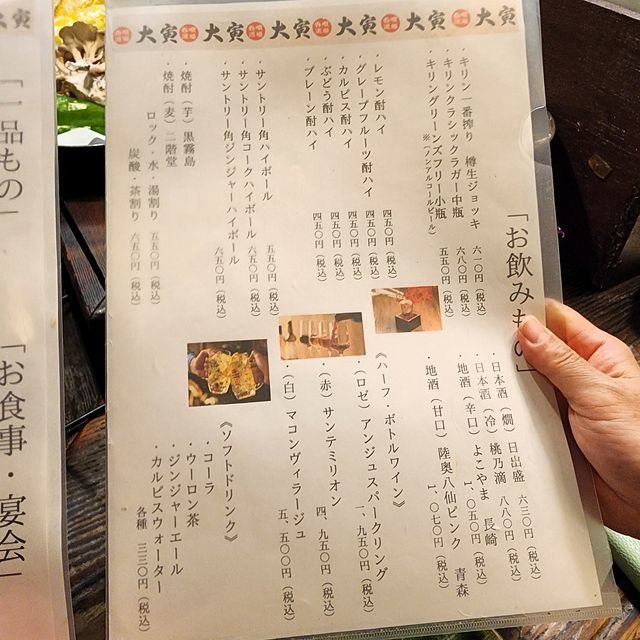 大寅 大寅 大寅 大寅 大寅 大寅
「お飲みもの」
・キリン一番搾り 樽生ジョッキ 六一〇円（税込）
・キリンクラシックラガー中瓶 六八〇円（税込）
・キリングリーンズフリー小瓶 五五〇円（税込）
※（ノンアルコールビール）
・レモン酎ハイ 四五〇円（税込）
・グレープフルーツ酎ハイ 四五〇円（税込）
・カルピス酎ハイ 四五〇円（税込）
・ぶどう酎ハイ 四五〇円（税込）
・プレーン酎ハイ 四五〇円（税込）
・サントリー角ハイボール 五五〇円（税込）
・サントリー角コークハイボール 六五〇円（税込）
・サントリー角ジンジャーハイボール 六五〇円（税込）
・焼酎（芋）黒霧島
・焼酎（麦）二階堂
ロック・水・湯割り 五五〇円（税込）
炭酸・茶割り 六五〇円（税込）
・日本酒（燗）日出盛 六三〇円（税込）
・日本酒（冷）桃乃滴 八八〇円（税込）
・地酒（辛口）よこやま 長崎
一、〇五〇円（税込）
・地酒（甘口）陸奥八仙ピンク 青森
一、〇七〇円（税込）
《ハーフ・ボトルワイン》
・（ロゼ）アンジュスパークリング
一、九五〇円（税込）
・（赤）サンテミリオン
四、九五〇円（税込）
・（白）マコンヴィラージュ
五、五〇〇円（税込）
《ソフトドリンク》
・コーラ
・ウーロン茶
・ジンジャーエール
・カルピスウォーター
各種 三三〇円（税込）
寅
「一品もの」
「お食事・宴会」